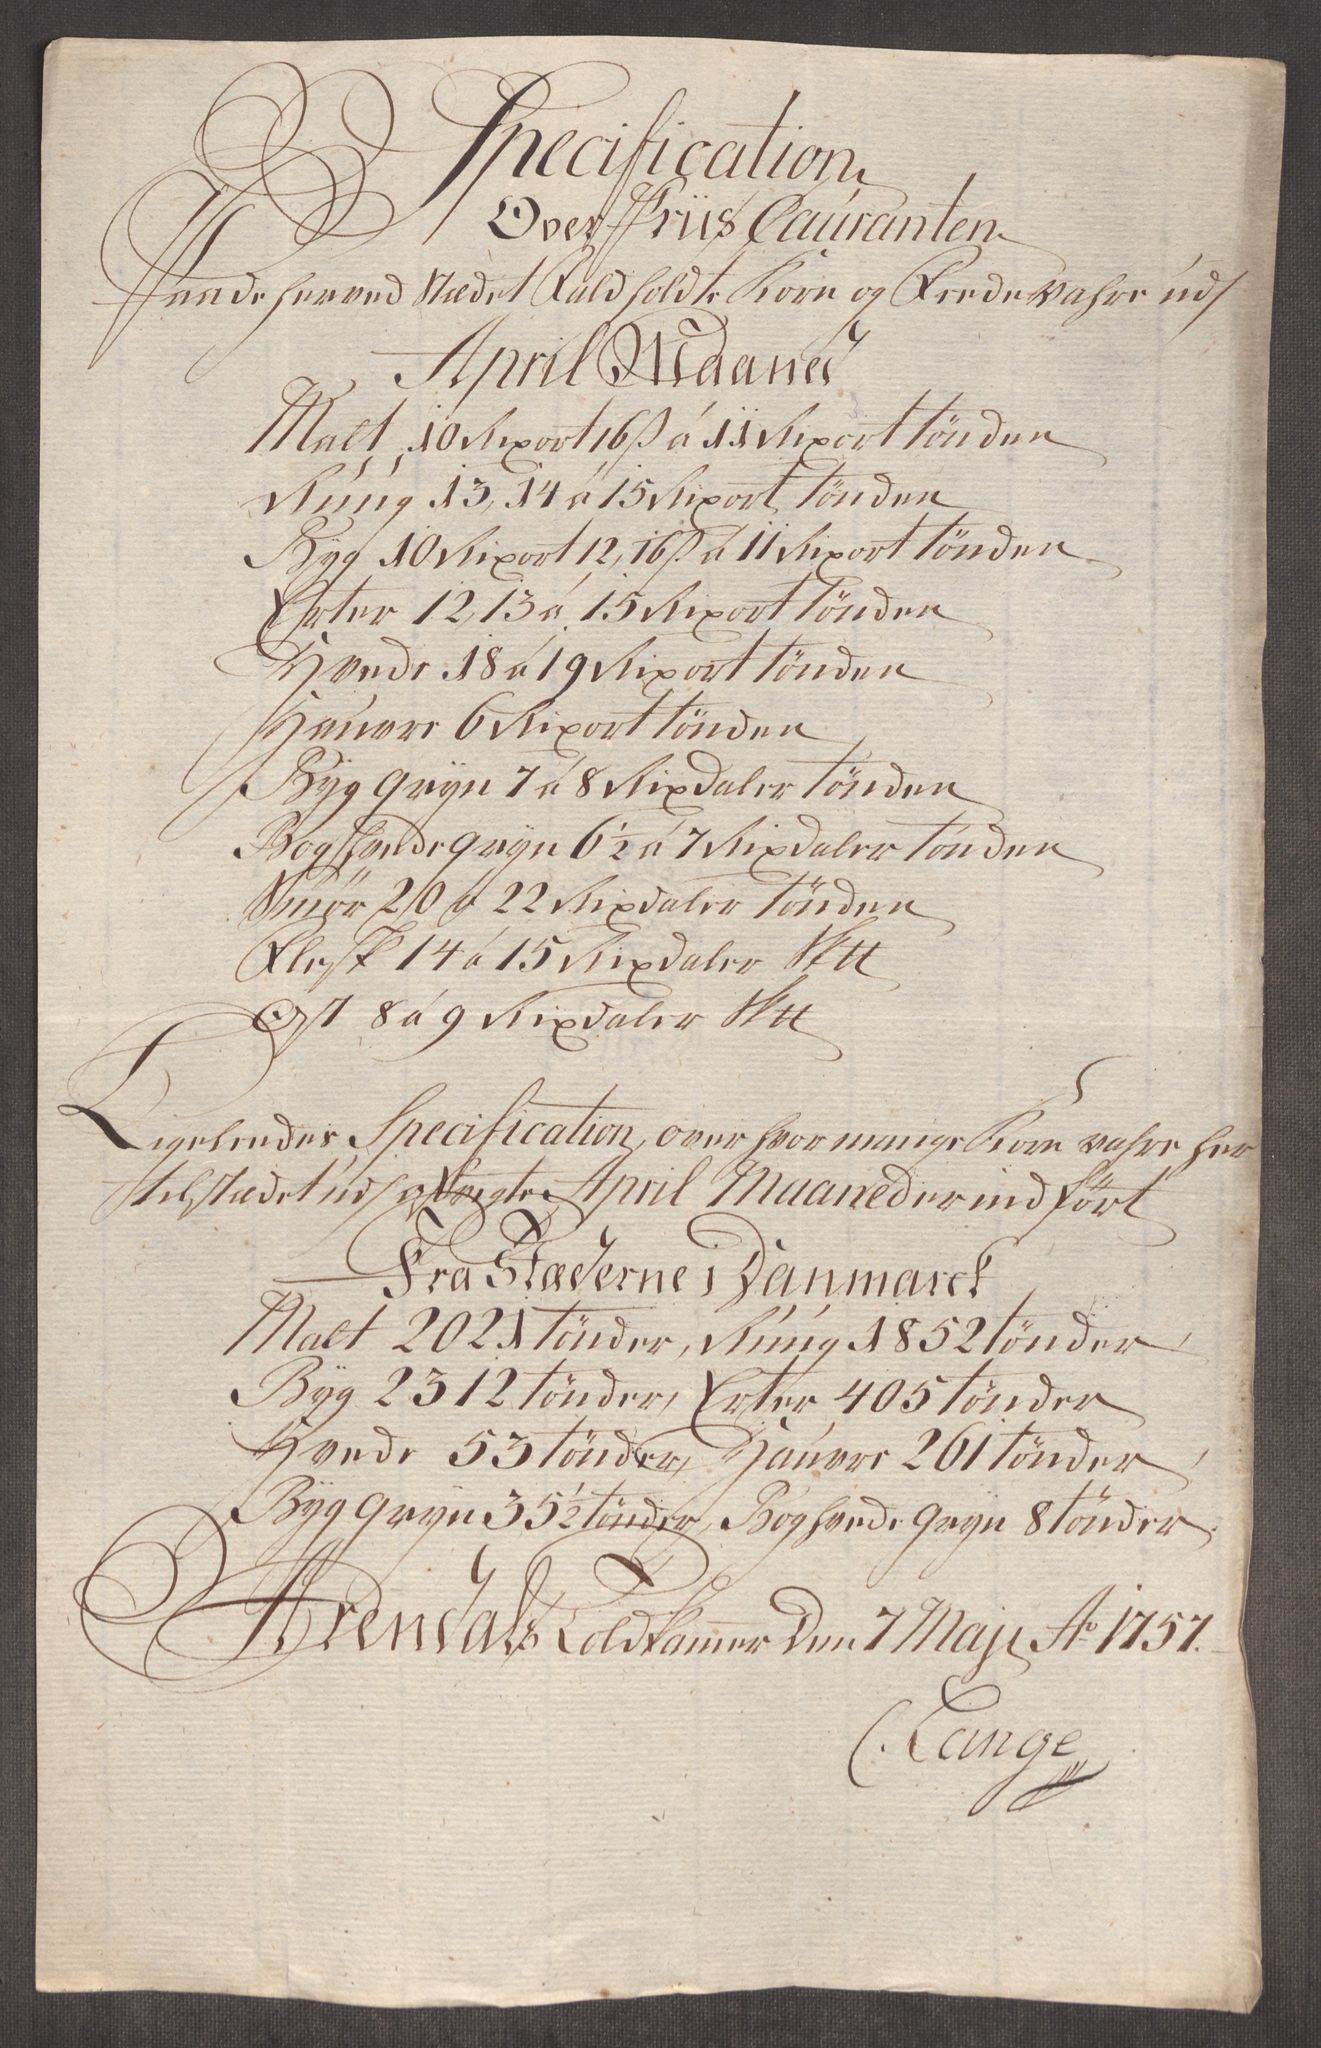 Specification
Over Priis Cauranten
Paa de herved Stædet Fald holdte Korn og Fede Vahre udj
April Maaned
Malt, 10 Rixort 16 s á 11 Rixort tønden
Rúúg 13, 14 á 15 Rixort tønden
Byg 10 Rixort 12, 16 s á 11 Rixort tønden
Erter 12, 13 á 15 Rixort tønden
Hvede 18 á 19 Rixort tønden
Haúvre 6 Rixort tønden
Byg gryn 7 á 8 Rixdaler tønden
Boghvede gryn 6½ á 7 Rixdaler tønden
Smør 20 á 22 Rixdaler tønden
Flesk 14 á 15 Rixdaler Sktt
Ost 8 á 9 Rixdaler Sktt
Ligeleedes Specification, over hvor mange Korn vahre her
til stædet udj April Maaned er indført
Fra Stæderne i Danmarck
Malt 2021 tønder, Rúúg 1852 tønder
Byg 2312 tønder, Erter 405 tønder
Hvede 53 tønder, Haúvre 261 tønder
Byg gryn 35½ tønder, Boghvede gryn 8 tønder
Arendals Toldkammer den 7 Maji Ao 1757.
C. Lange